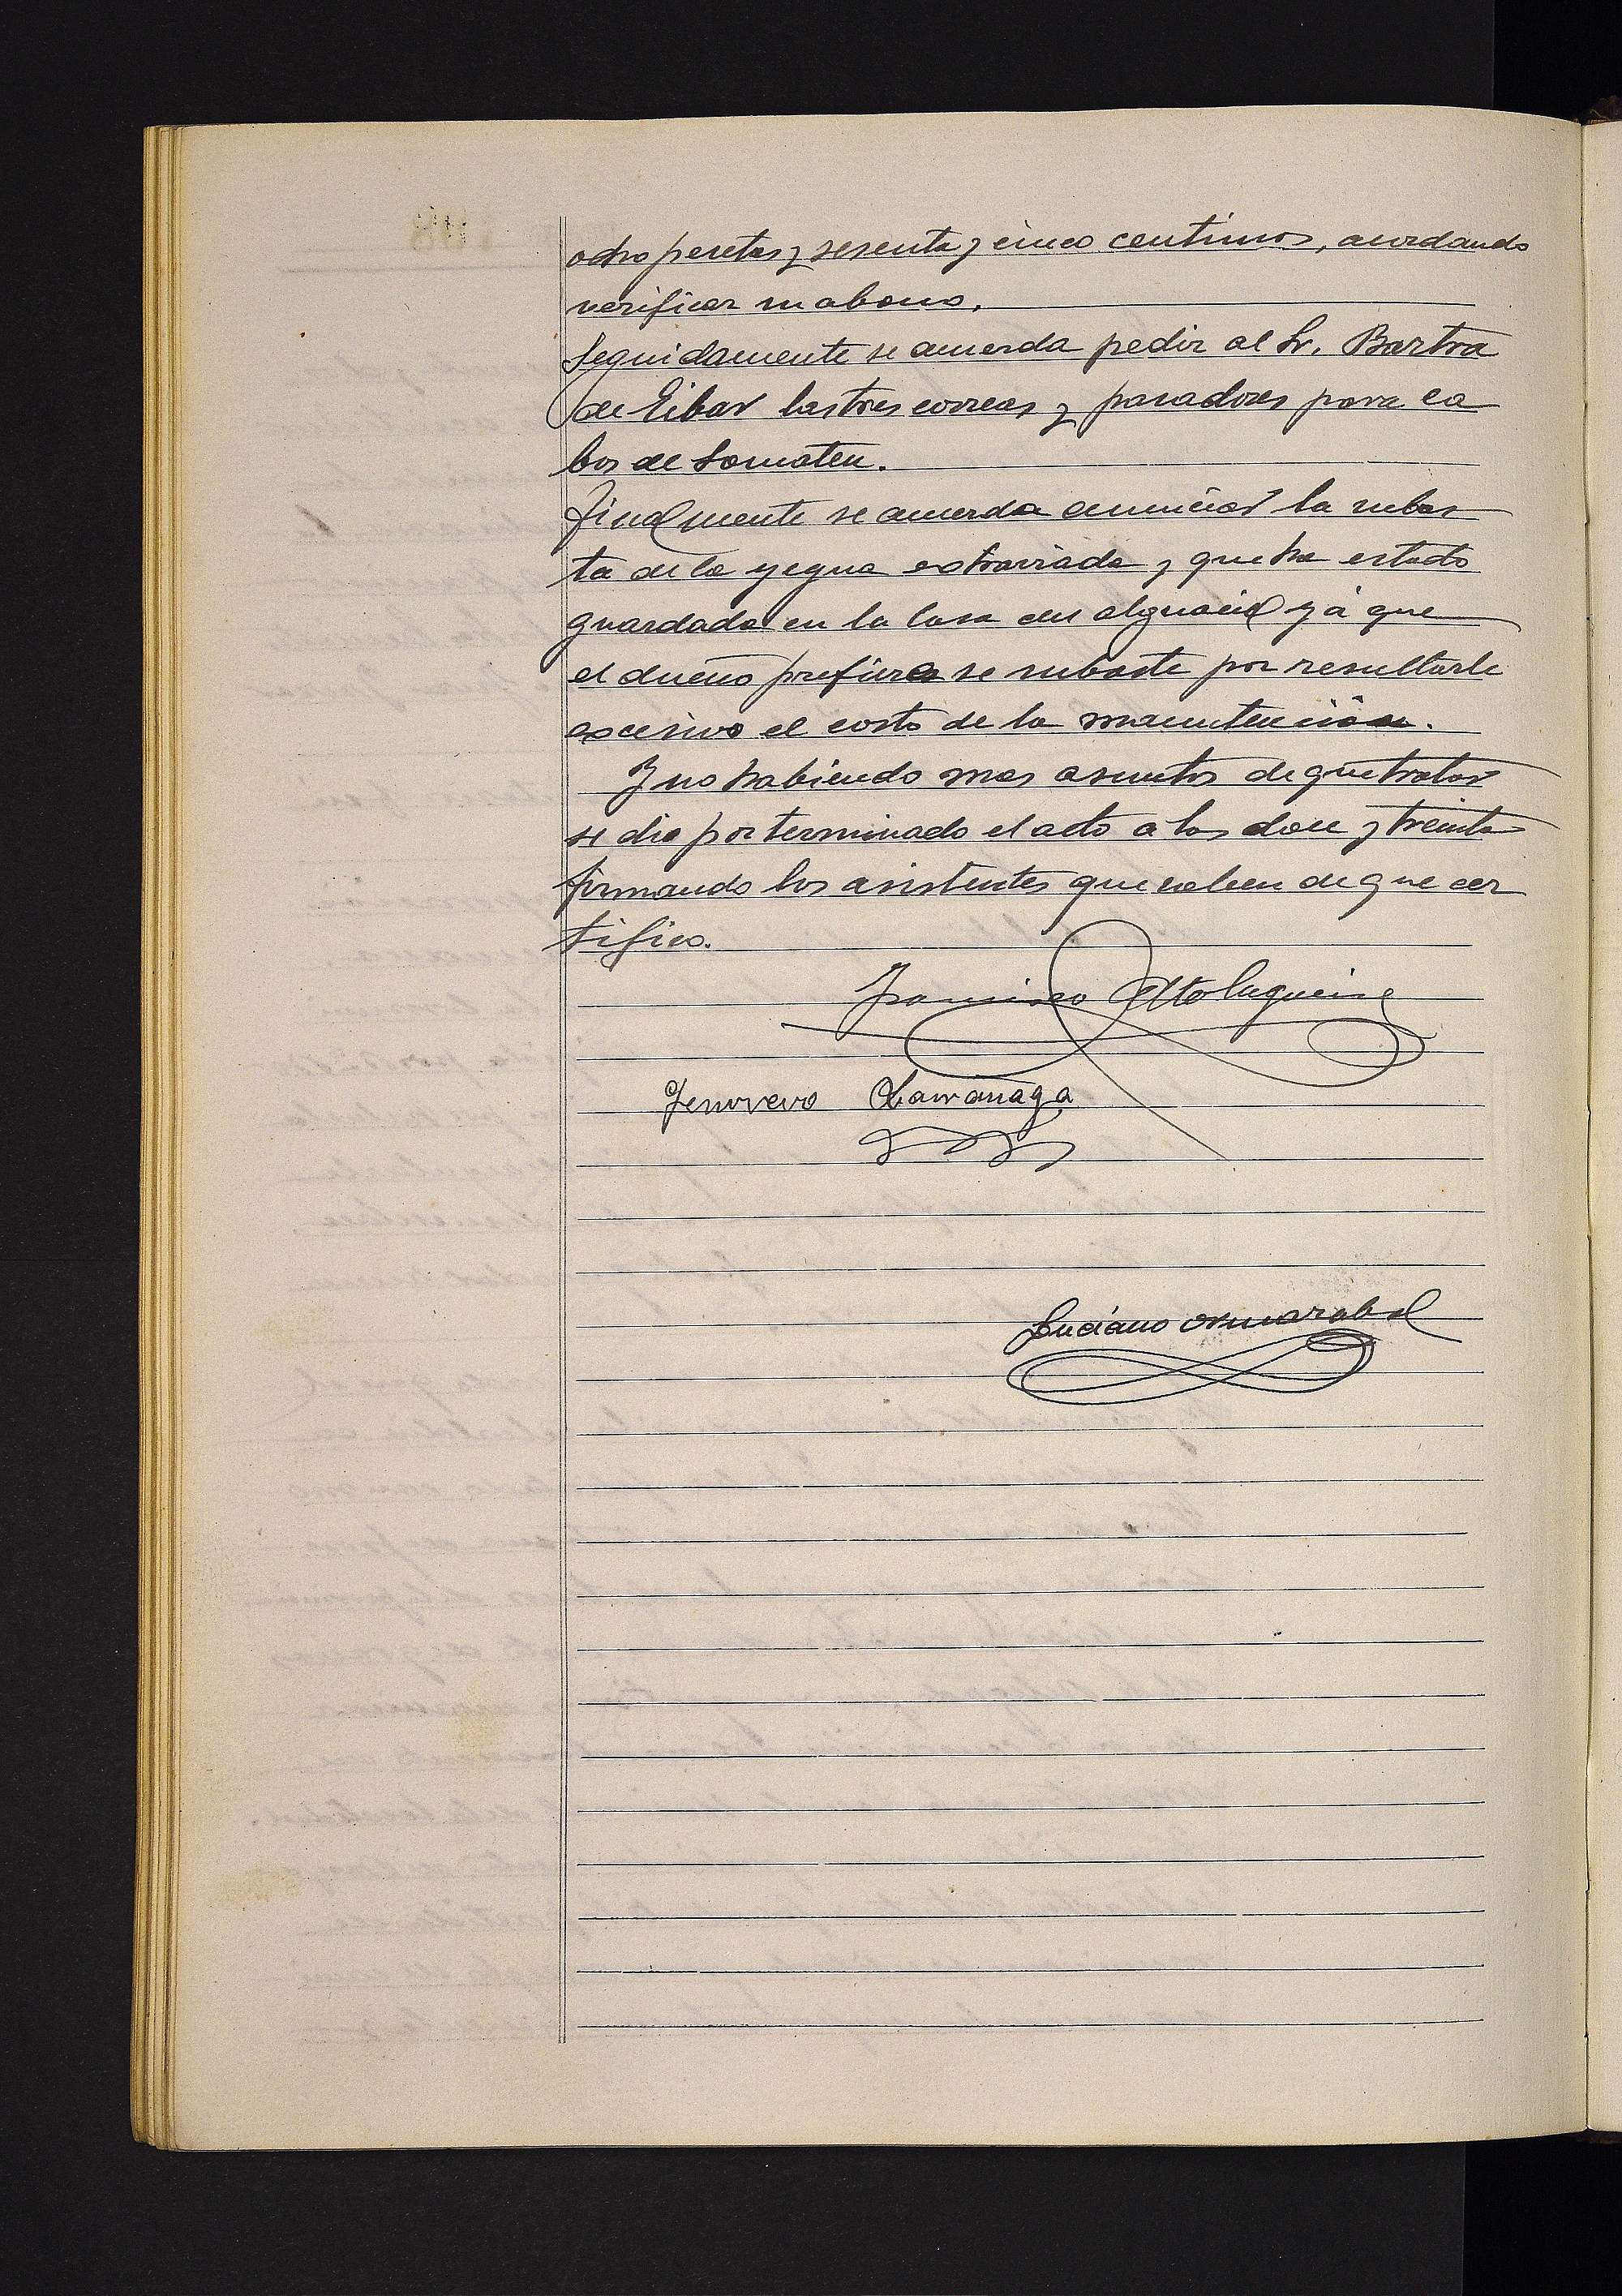 ocho pesetas y sesenta y cinco centimos, acordando
verificar su abono.
Seguidamente se acuerda pedir al Sr. Bartra
de Eibar las tres correas y pasadores para ca
bos de Somaten.
Finalmente se acuerda anunciar la subas
ta de la yegua extraviada y que ha estado
guardada en la casa del alguacil yá que
el dueño prefiere se subaste por resultarle
excesivo el costo de la manutención.
Y no habiendo mas asuntos de que tratar
se dio por terminado el acto a las doce y treinta
firmando los asistentes que saben de que cer
tifico.
Francisco Altolaguirre
Jenovevo Larrañaga
Luciano Ormazabal